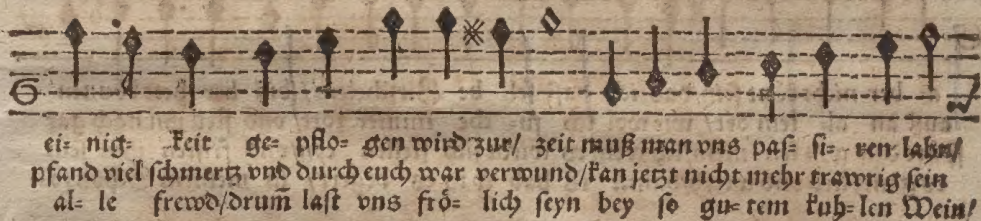 ei= nig= keit ge= pflo= gen wird zur/ zeit muß man vns paſ= ſi= ren lahn/
pfand viel ſchmertz vnd durch euch war verwund/kan jetzt nicht mehr trawrig ſein
al= le frewd/drum̃ laſt vns frö= lich ſeyn bey ſo gu= tem kuh= len Wein/